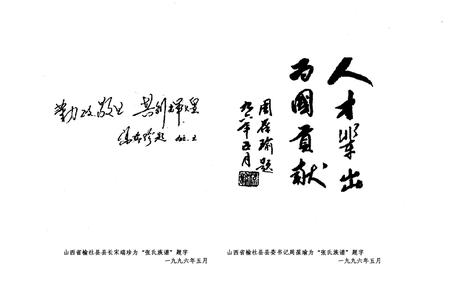 勤政敬业 共创辉煌
人才辈出
为國貢献
周葆瑜题
九六年五月
山西省榆社县县长宋瑞珍为“张氏族谱”题字
一九九六年五月
山西省榆社县县委书记周葆瑜为“张氏族谱”题字
一九九六年五月